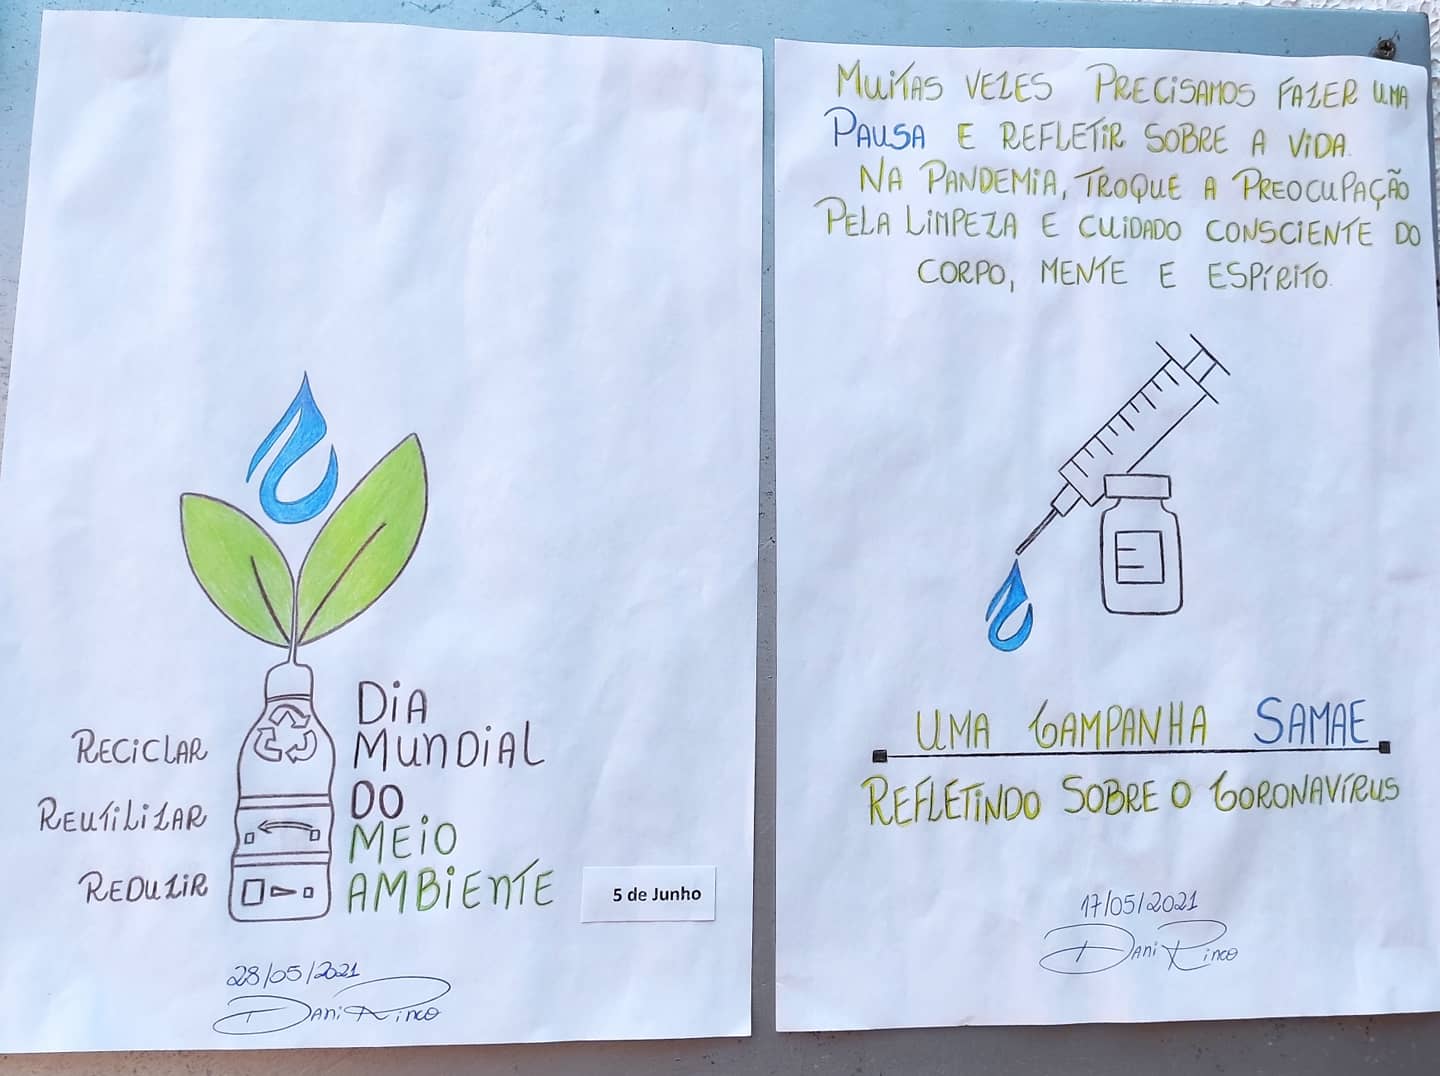 RECICLAR
REUTILIZAR
REDUZIR
DIA
MUNDIAL
DO
MEIO
AMBIENTE
5 de Junho
28/05/2021
DANI RINCO
MUITAS VEZES PRECISAMOS FAZER UMA
PAUSA E REFLETIR SOBRE A VIDA.
NA PANDEMIA, TROQUE A PREOCUPAÇÃO
PELA LIMPEZA E CUIDADO CONSCIENTE DO
CORPO, MENTE E ESPÍRITO.
UMA CAMPANHA SAMAE
REFLETINDO SOBRE O CORONAVÍRUS
17/05/2021
DANI RINCO